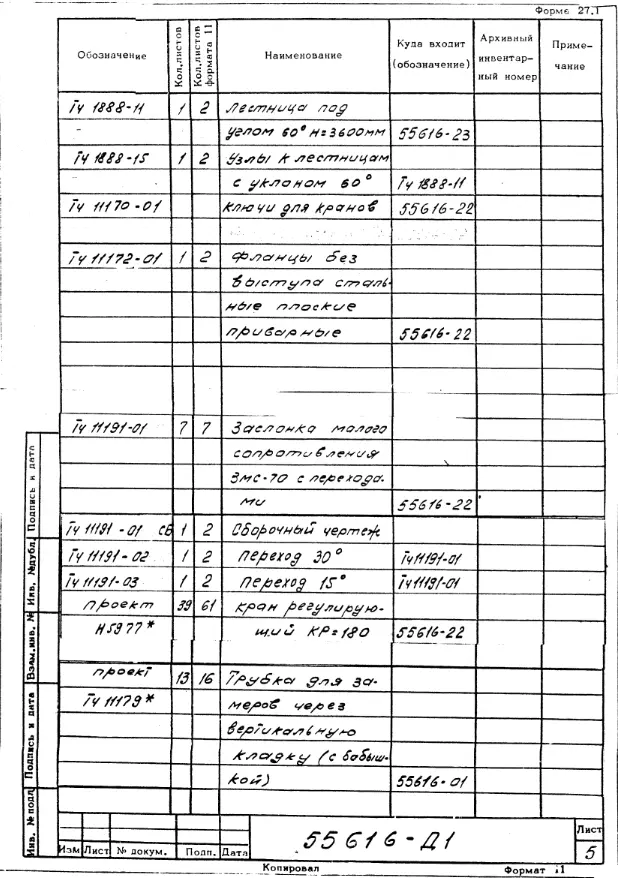 Форма 27.1
Обозначение Кол.листов Кол.листов формата 11 Наименование Куда входит (обозначение) Архивный инвентарный номер Примечание
Тч 1888-11 1 2 Лестница под
углом 60° H=3600мм 55616-23
Тч 1888-15 1 2 Узлы к лестницам
с уклоном 60° Тч 1888-11
Тч 11170-01 Ключи для кранов 55616-22
Тч 11172-01 1 2 Фланцы без
выступа сталь-
ные плоские
приварные 55616-22
Тч 11191-01 7 7 Заслонка малого
сопротивления
ЗМС-70 с перехода-
ми 55616-22
Тч 11191-01 СБ 1 2 Сборочный чертеж
Тч 11191-02 1 2 Переход 30° Тч 11191-01
Тч 11191-03 1 2 Переход 15° Тч 11191-01
проект 39 61 кран регулирую-
Н5977* щий КР=180 55616-22
проект 13 16 Трубка для за-
Тч 11179* меров через
вертикальную
кладку (с бобыш-
кой) 55616-01
55616-Д1
Лист
5
Изм Лист № докум. Подп. Дата
Копировал Формат 11
Подпись и дата
Инв. № дубл.
Взам.инв. №
Подпись и дата
Инв. № подл